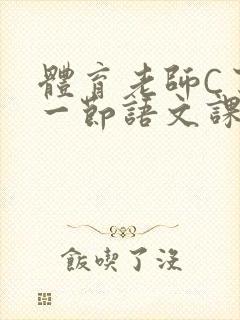 體育老師C
一節語文課
飯喫了沒